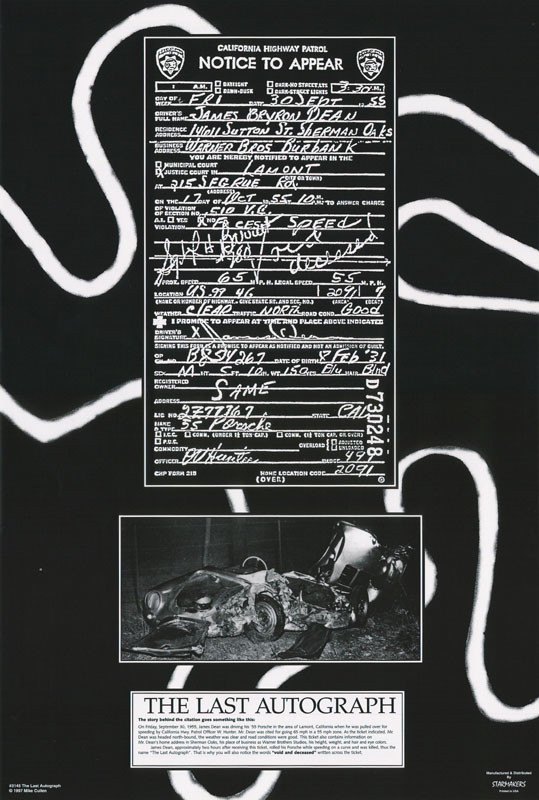 CALIFORNIA HIGHWAY PATROL
NOTICE TO APPEAR
A.M. DAYLIGHT DARK-NO STREET LTS 3:30 P.M.
DAWN-DUSK DARK-STREET LIGHTS
DAY OF WEEK FRI DATE 30 SEPT 19 55
DRIVER'S FULL NAME JAMES BRYRON DEAN
RESIDENCE ADDRESS 14011 SUTTON ST. SHERMAN OAKS
BUSINESS ADDRESS WARNER BROS BURBANK
YOU ARE HEREBY NOTIFIED TO APPEAR IN THE
MUNICIPAL COURT
JUSTICE COURT IN LAMONT
(CITY OR TOWN)
AT 215 SEGRUE RD.
(ADDRESS)
ON THE 17 DAY OF OCT 19 55 10 A.M. TO ANSWER CHARGE
OF VIOLATION
OF SECTION NO. 510 V.C.
A.I. YES NO
VIOLATION EXCESS SPEED
void
deceased
APROX. SPEED 65 M.P.H. LEGAL SPEED 55 M.P.H.
LOCATION US 99 46 2091 7
(NAME OR NUMBER OF HIGHWAY - GIVE STATE RT. AND SEC. NO.) (AREA) (BEAT)
WEATHER CLEAR TRAFFIC NORTH ROAD COND. Good
I PROMISE TO APPEAR AT TIME AND PLACE ABOVE INDICATED
DRIVER'S SIGNATURE X James Dean
SIGNING THIS FORM IS A PROMISE TO APPEAR AS NOTIFIED AND NOT AN ADMISSION OF GUILT.
DATE OF BIRTH 8 Feb '31
SEX M HT. 5 FT. 10 IN. WT. 150 EYES Blu HAIR Blnd
REGISTERED OWNER SAME
ADDRESS
LIC NO. 2Z77767 STATE CAL
MAKE & TYPE 55 Porsche
I.C.C. COMM. (UNDER 1½ TON CAP.) COMM. (1½ TON CAP. OR OVER)
P.U.C. OVERLOAD ADJUSTED
COMMODITY UNLOADED
OFFICER Hunter BADGE
CHP FORM 215 HOME LOCATION CODE 2091
(OVER)
D730248
THE LAST AUTOGRAPH
The story behind the citation goes something like this:
On Friday, September 30, 1955, James Dean was driving his '55 Porsche in the area of Lamont, California when he was pulled over for
speeding by California Hwy. Patrol Officer W. Hunter. Mr. Dean was cited for going 65 mph in a 55 mph zone. As the ticket indicated, Mr.
Dean was headed north-bound, the weather was clear and road conditions were good. This ticket also contains information on
Mr. Dean's home address in Sherman Oaks, his place of business at Warner Brothers Studios, his height, weight, and hair and eye colors.
James Dean, approximately two hours after receiving this ticket, rolled his Porsche while speeding on a curve and was killed, thus the
name "The Last Autograph". That is why you will also notice the words "void and deceased" written across the ticket.
#3145 The Last Autograph
© 1997 Mike Cullen
Manufactured & Distributed
By
STARMAKERS
Printed in USA